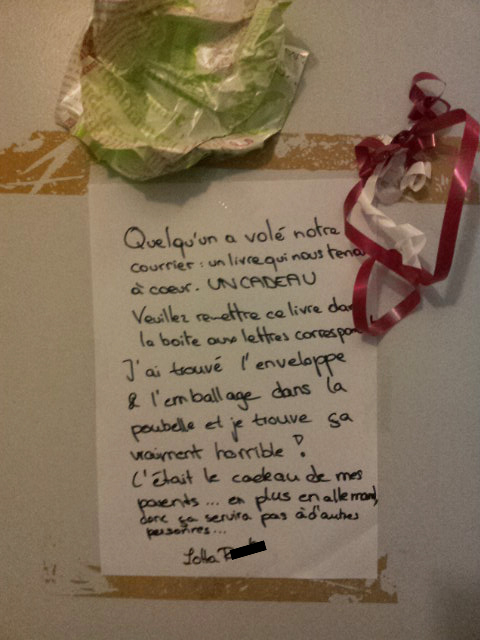 Quelqu'un a volé notre
courrier : un livre qui nous tena
à coeur. UN CADEAU
Veuillez remettre ce livre dan
la boite aux lettres correspon
J'ai trouvé l'enveloppe
& l'emballage dans la
poubelle et je trouve sa
vraiment horrible !
C'était le cadeau de mes
parents... en plus en allemand,
donc ça servira pas à d'autres
personnes...
Lotta